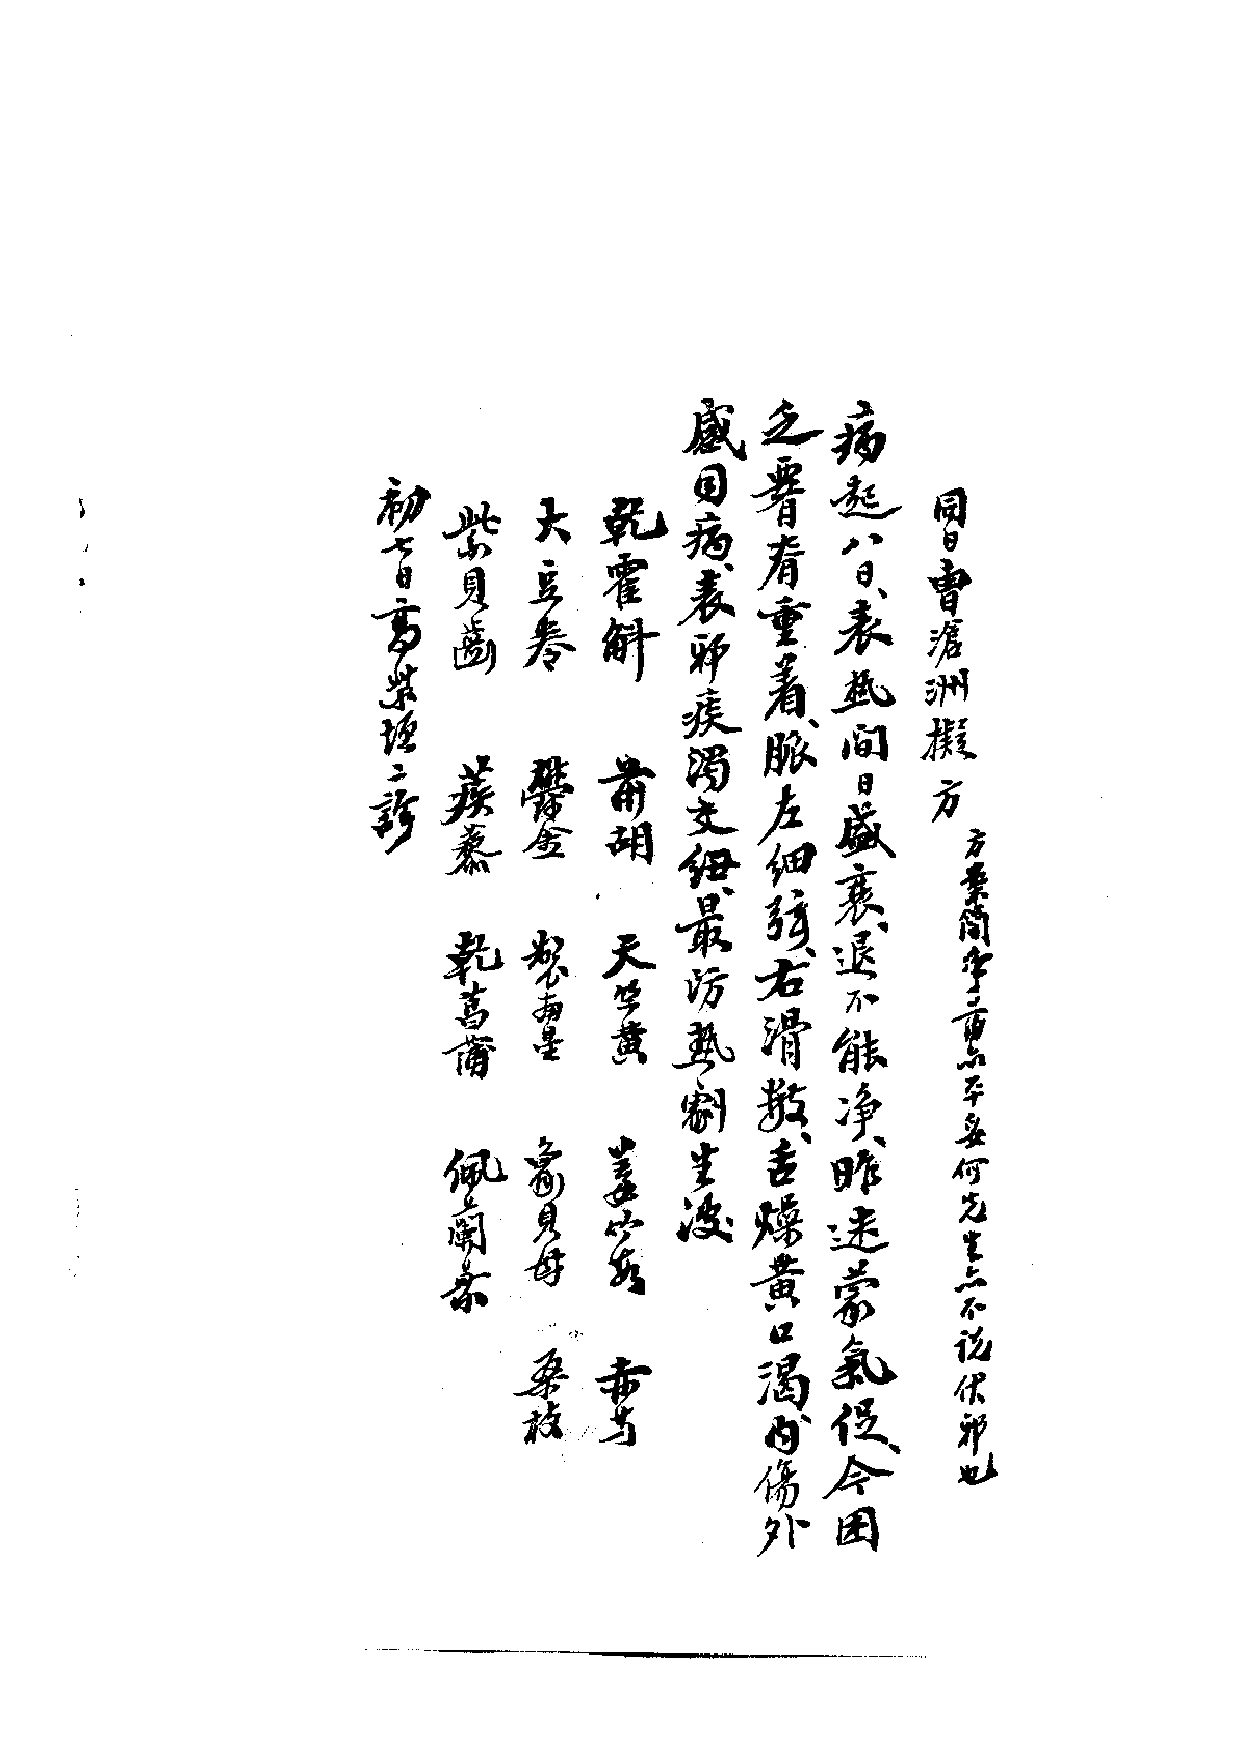 同日曹滄洲擬方
方案簡重亦平妥何先生亦不說伏邪也
病起八日、表热間日盛衰、退不能净、昨迷蒙氣促、今困
乏瞀脊重着、脈左細弦、右滑数、舌燥黄口渴、内傷外
感同病、表邪痰濁交纽、最防热劇生波
乾霍斛 前胡 天竺黄 姜竹茹 赤芍
大豆卷 鬱金 製南星 象貝母 桑枝
紫貝齒 蒺藜 乾菖蒲 佩蘭葉
初七日高紫垣二診